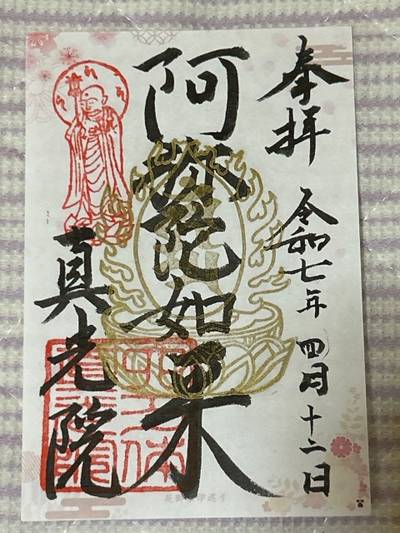 奉拝
令和七年四月十二日
阿弥陀如来
真光院